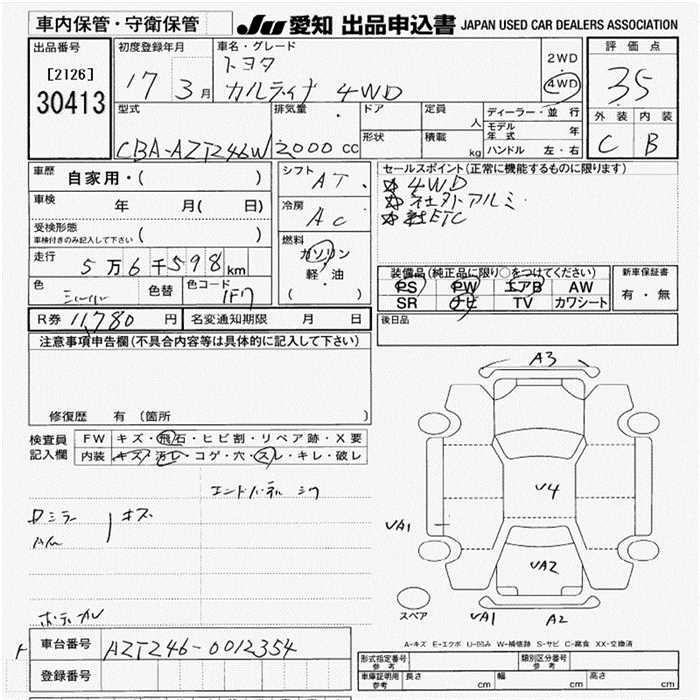 車内保管・守衛保管
JU 愛知 出品申込書 JAPAN USED CAR DEALERS ASSOCIATION
出品番号
[2126]
30413
初度登録年月
17 3月
車名・グレード
トヨタ
カルディナ 4WD
2WD
4WD
評価点
35
外装 内装
C B
型式
CBA-AZT246W
排気量
2000 cc
ドア
形状
定員
人
積載
kg
ディーラー・並行
モデル年式 年
ハンドル 左・右
車歴 自家用・( )
車検 年 月( 日)
受検形態
車検付きのみ記入して下さい ( )
走行 5万6千598km
色 シルバー 色替 色コード 1F7
R券 11,780 円 名変通知期限 月 日
シフト
AT
冷房
AC
燃料
ガソリン
軽・油
( )
セールスポイント(正常に機能するものに限ります)
4WD
社外アルミ
ETC
装備品(純正品に限り○をつけてください)
PS PW エアB AW
SR ナビ TV カワシート
新車保証書
有・無
後日品
注意事項申告欄(不具合内容等は具体的に記入して下さい)
修復歴 有 (箇所 )
検査員
記入欄
FW キズ・飛石・ヒビ割・リペア跡・X要
内装 キズ・汚レ・コゲ・穴・スレ・キレ・破レ
ミラー キズ
A3
U4
UA1
UA2
スペア
UA1
A2
A-キズ E-エクボ U-凹み W-補修跡 S-サビ C-腐食 XX-交換済
車台番号 AZT246-0012354
登録番号
形式指定番号
参考
類別区分番号
参考
車庫証明用
参考
長さ cm 幅 cm 高さ cm